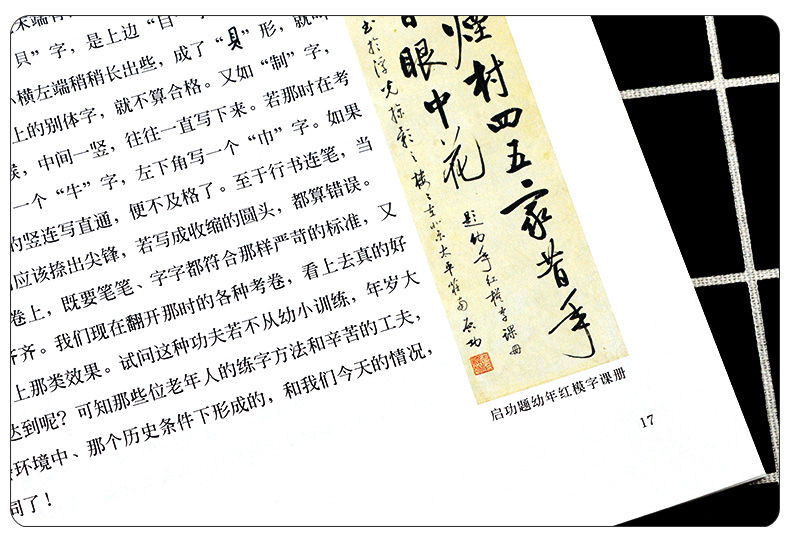 貝”字，是上边“目”
横左端稍稍长出些，成了“貝”形，就
上的别体字，就不算合格。又如“制”字，
候，中间一竖，往往一直写下来。若那时在考
一个“牛”字，左下角写一个“巾”字。如果
的竖连写直通，便不及格了。至于行书连笔，当
应该捺出尖锋，若写成收缩的圆头，都算错误。
卷上，既要笔笔、字字都符合那样严苛的标准，又
齐。我们现在翻开那时的各种考卷，看上去真的好
上那类效果。试问这种功夫若不从幼小训练，年岁大
达到呢？可知那些位老年人的练字方法和辛苦的工夫，
环境中、那个历史条件下形成的，和我们今天的情况，
同了！
煙村四五家昔年
眼中花
题幼年红模字课册
启功
启功题幼年红模字课册
17